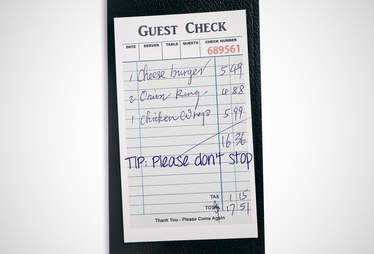 GUEST CHECK
DATE SERVER TABLE GUESTS CHECK NUMBER
689561
1 Cheese burger 5 49
2 Onion Ring 4 88
1 Chicken Wrap 5 99
16 36
TIP: Please don't stop
TAX 1 15
TOTAL $ 17 51
Thank You - Please Come Again